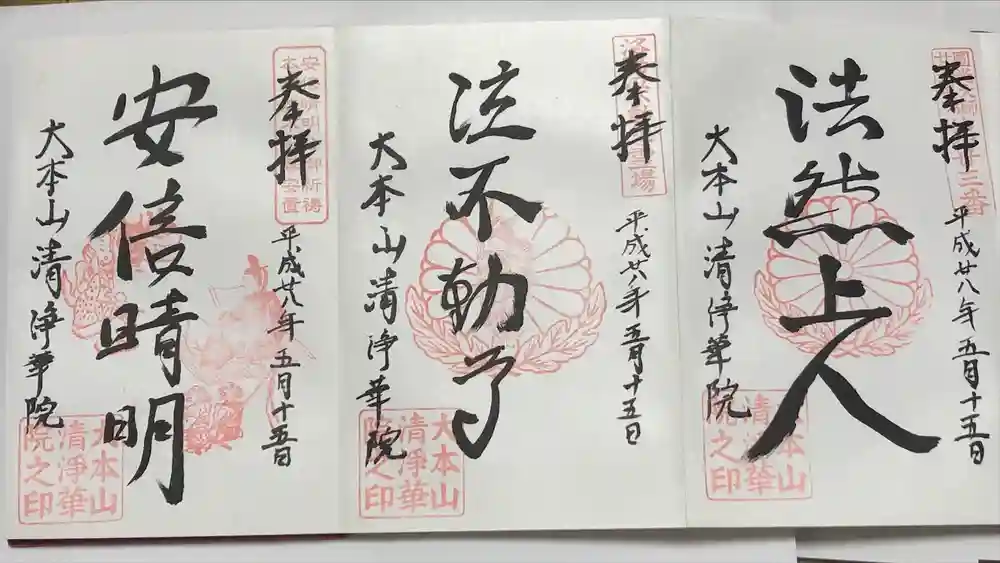 奉拝
法然上人
平成廿八年五月十五日
大本山清浄華院
大本山
清浄華
院之印
奉拝
泣不動尊
平成廿八年五月十五日
大本山清浄華院
大本山
清浄華
院之印
奉拝
安倍晴明
平成廿八年五月十五日
大本山清浄華院
大本山
清浄華
院之印